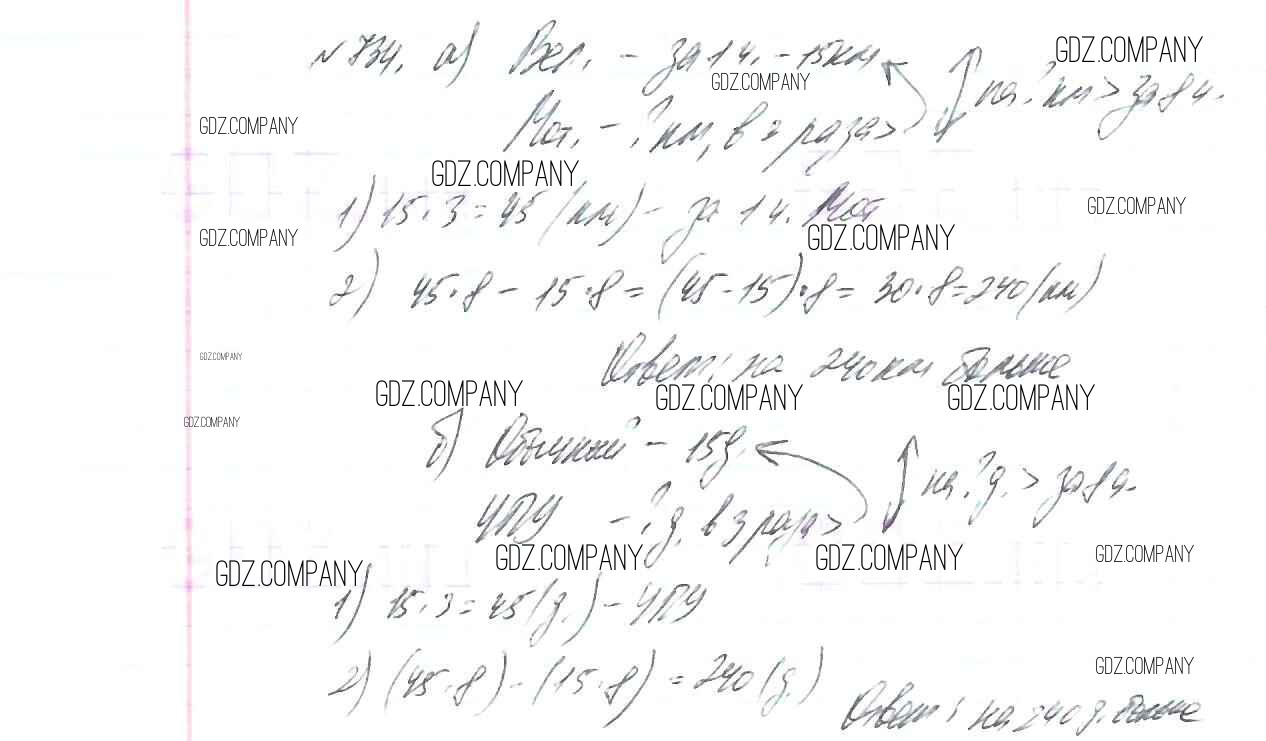 № 734. а) Вел. – за 1 ч. – 15 км
GDZ.COMPANY
на ? км > за 8 ч.
GDZ.COMPANY
GDZ.COMPANY
Мот. – ? км, в раза >
GDZ.COMPANY
1) 15 · 3 = 45 (км) – за 1 ч. Мот
GDZ.COMPANY
GDZ.COMPANY
GDZ.COMPANY
2) 45 · 8 – 15 · 8 = (45 - 15) · 8 = 30 · 8 = 240 (км)
GDZ.COMPANY
Ответ: на 240 км больше
GDZ.COMPANY GDZ.COMPANY GDZ.COMPANY
GDZ.COMPANY
б) Обычный – 15 д.
на ? д. > за 8 ч.
ЧПУ – ? д. в 3 раза >
GDZ.COMPANY GDZ.COMPANY GDZ.COMPANY
GDZ.COMPANY
1) 15 · 3 = 45 (д.) – ЧПУ
GDZ.COMPANY
2) (45 · 8) – (15 · 8) = 240 (д.)
Ответ: на 240 д. больше